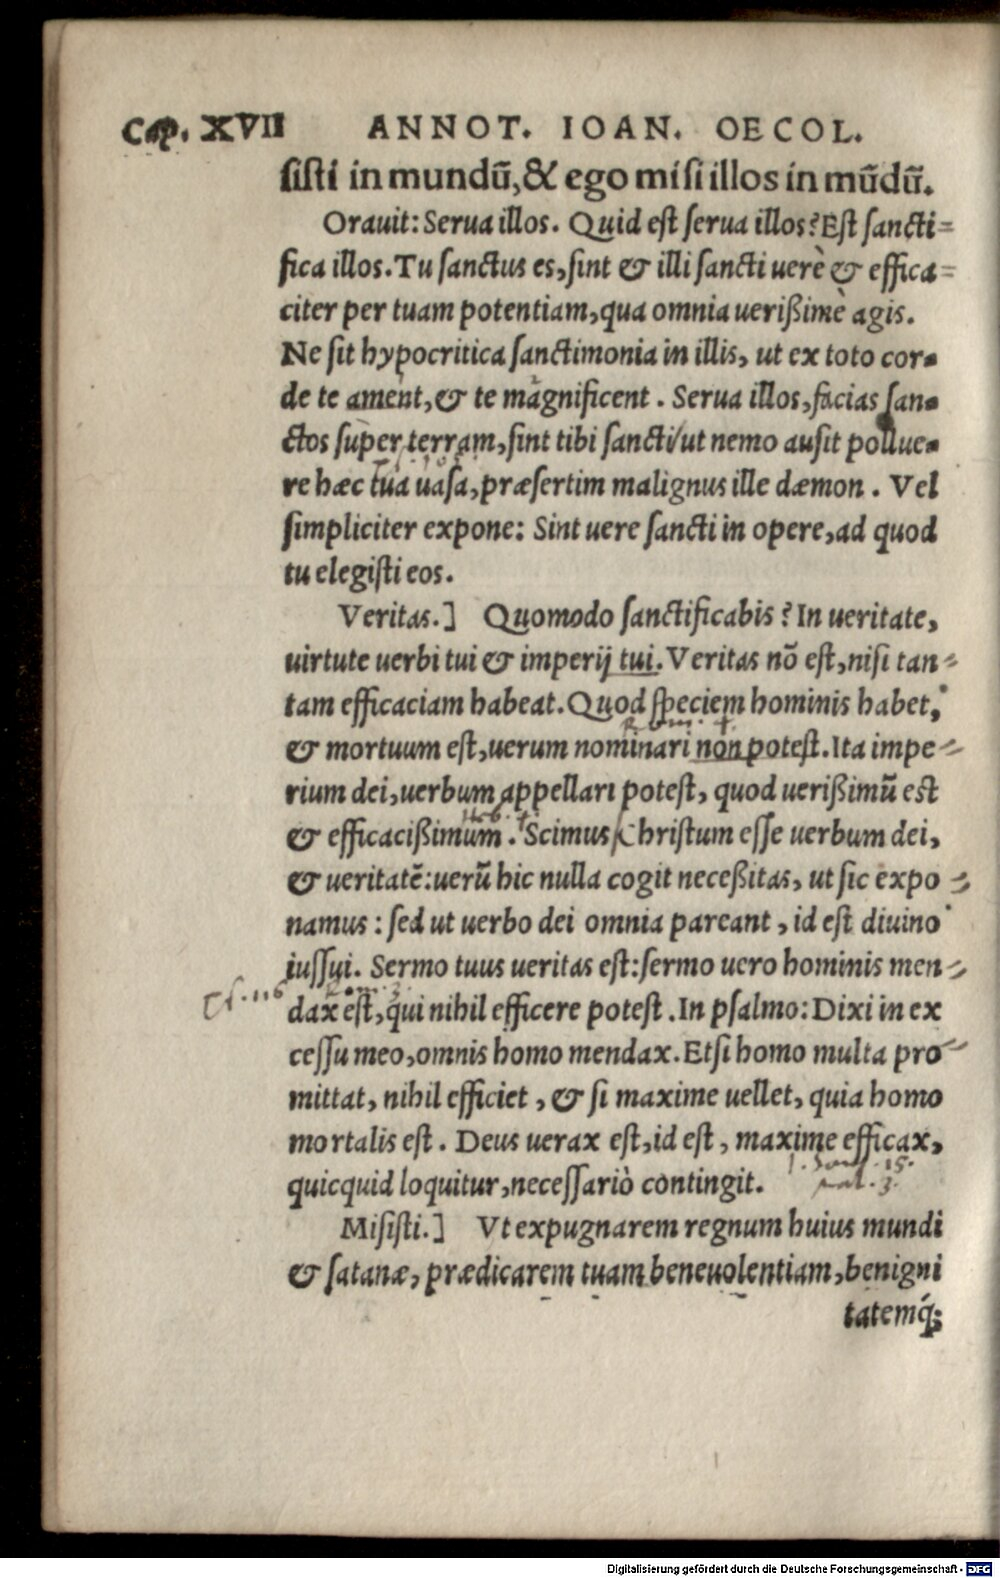 Cap. XVII ANNOT. IOAN. OECOL.
sisti in mundũ, & ego misi illos in mũdũ.
Orauit: Serua illos. Quid est serua illos? Est sancti=
fica illos. Tu sanctus es, sint & illi sancti uerè & effica=
citer per tuam potentiam, qua omnia uerißimè agis.
Ne sit hypocritica sanctimonia in illis, ut ex toto cor=
de te ament, & te magnificent. Serua illos, facias san=
ctos super terram, sint tibi sancti/ ut nemo ausit pollue=
re hæc tua uasa, præsertim malignus ille dæmon. Vel
simpliciter expone: Sint uere sancti in opere, ad quod
tu elegisti eos.
Veritas.] Quomodo sanctificabis? In ueritate,
uirtute uerbi tui & imperij tui. Veritas nõ est, nisi tan=
tam efficaciam habeat. Quod speciem hominis habet,
Rom. 4.
& mortuum est, uerum nominari non potest. Ita impe=
rium dei, uerbum appellari potest, quod uerißimũ est
Heb. 4
& efficacißimum. Scimus Christum esse uerbum dei,
& ueritatẽ: uerũ hic nulla cogit neceßitas, ut sic expo=
namus: sed ut uerbo dei omnia pareant, id est diuino
iussui. Sermo tuus ueritas est: sermo uero hominis men=
Ps. 116 Rom. 3.
dax est, qui nihil efficere potest. In psalmo: Dixi in ex
cessu meo, omnis homo mendax. Etsi homo multa pro=
mittat, nihil efficiet, & si maxime uellet, quia homo
mortalis est. Deus uerax est, id est, maxime efficax,
15.
quicquid loquitur, necessariò contingit. 3.
Misisti.] Vt expugnarem regnum huius mundi
& satanæ, prædicarem tuam beneuolentiam, benigni
tatemq́;
Digitalisierung gefördert durch die Deutsche Forschungsgemeinschaft - DFG